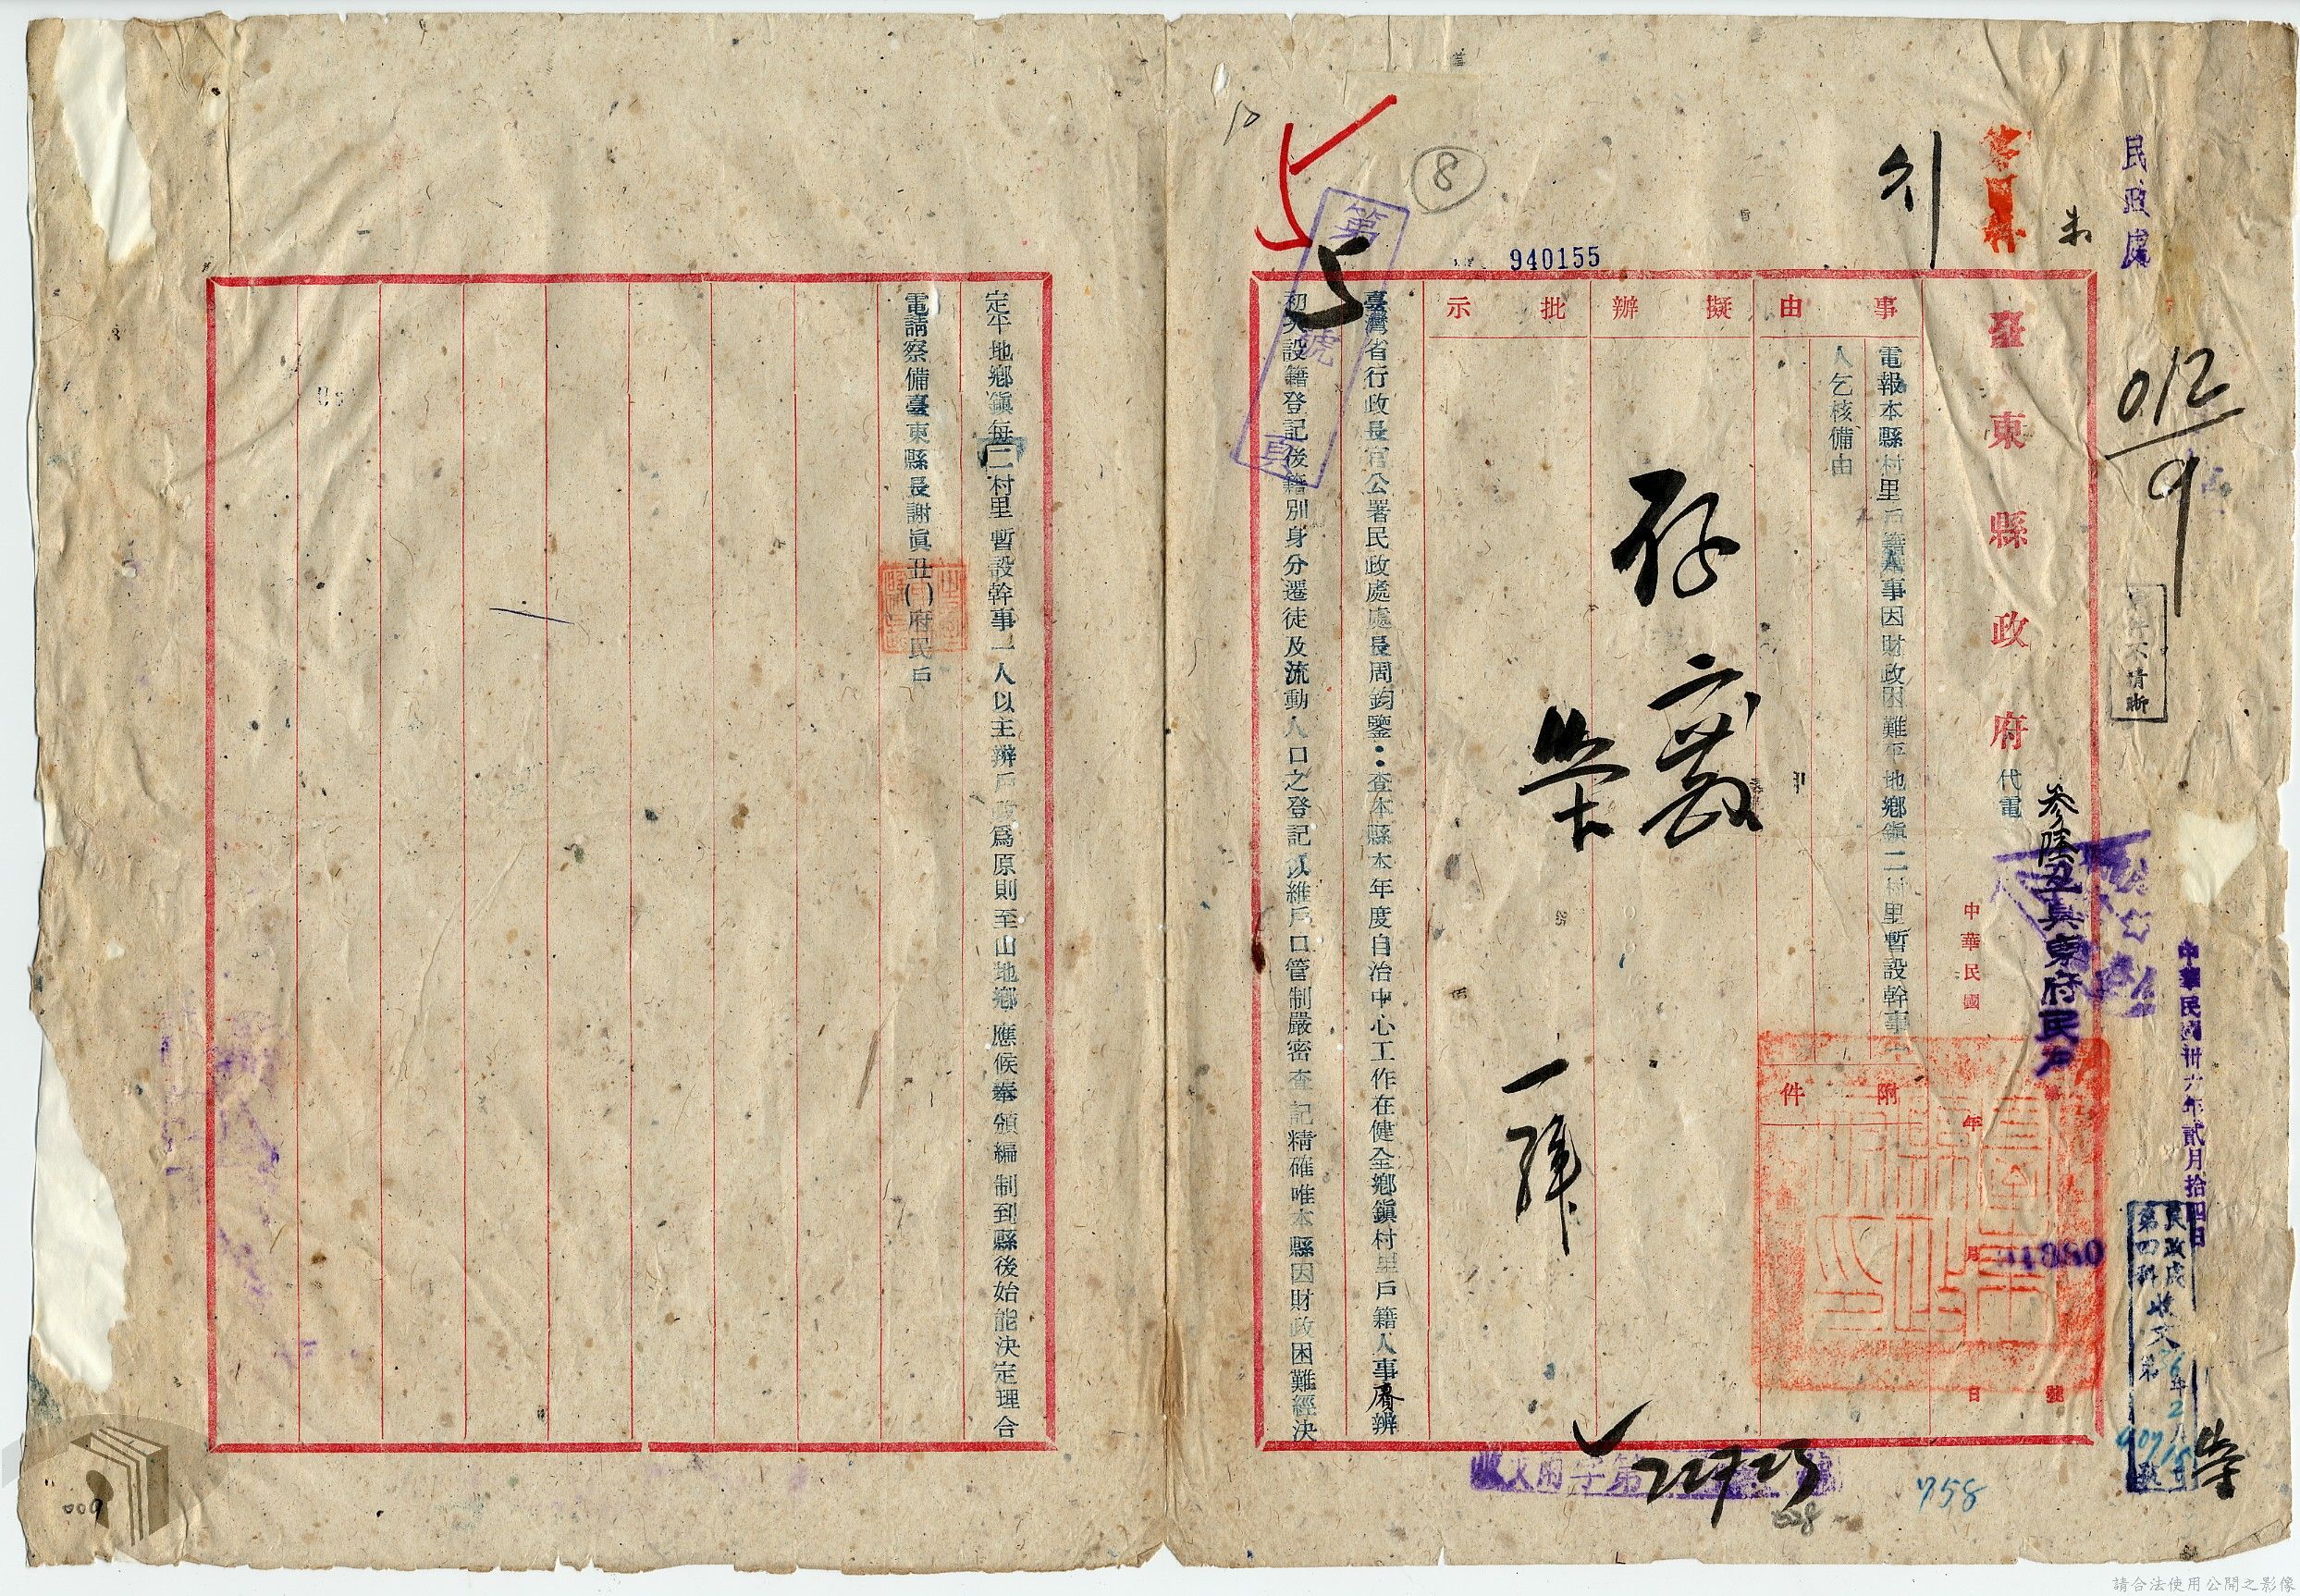 民政處
012
9
臺東縣政府
代電
參陸丑真東府民戶
中華民國
年
月
日
號
01880
中華民國卅六年貳月拾四日
民政處
第四科收文
36年2月
事由
電報本縣村里戶籍人事因財政困難平地鄉鎮二村里暫設幹事一
人乞核備由
附件
擬辦
存
批示
一
940155
8
第 號 頁
5
臺灣省行政長官公署民政處處長周鈞鑒：查本縣本年度自治中心工作在健全鄉鎮村里戶籍人事賡辦
初次設籍登記後籍別身分遷徒及流動人口之登記以維戶口管制嚴密查記精確唯本縣因財政困難經決
22723
758
028
定平地鄉鎮每二村里暫設幹事一人以主辦戶政為原則至山地鄉應候奉頒編制到縣後始能決定理合
電請察備臺東縣長謝真丑( )府民戶
009
請合法使用公開之影像